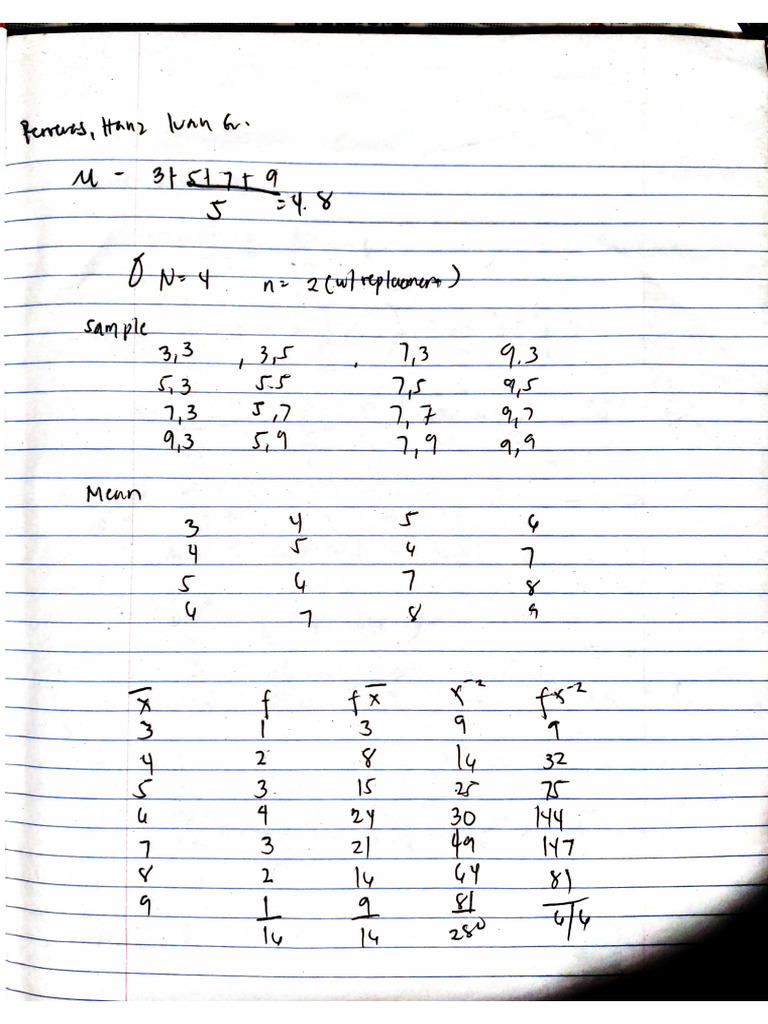 Hanz Ivan G.
M - 3+5+7+9
5 =4.8
N=4 n=2 (w/replacement)
Sample
3,3 , 3,5 , 7,3 9,3
5,3 5.5 7,5 9,5
7,3 5,7 7,7 9,7
9,3 5,9 7,9 9,9
Mean
3 4 5 6
4 5 6 7
5 6 7 8
6 7 8 9
x̅ f f x̅ x⁻² fx⁻²
3 1 3 9 9
4 2 8 16 32
5 3 15 25 75
6 4 24 30 144
7 3 21 49 147
8 2 16 64 81
9 1 9 81 616
16 16 280